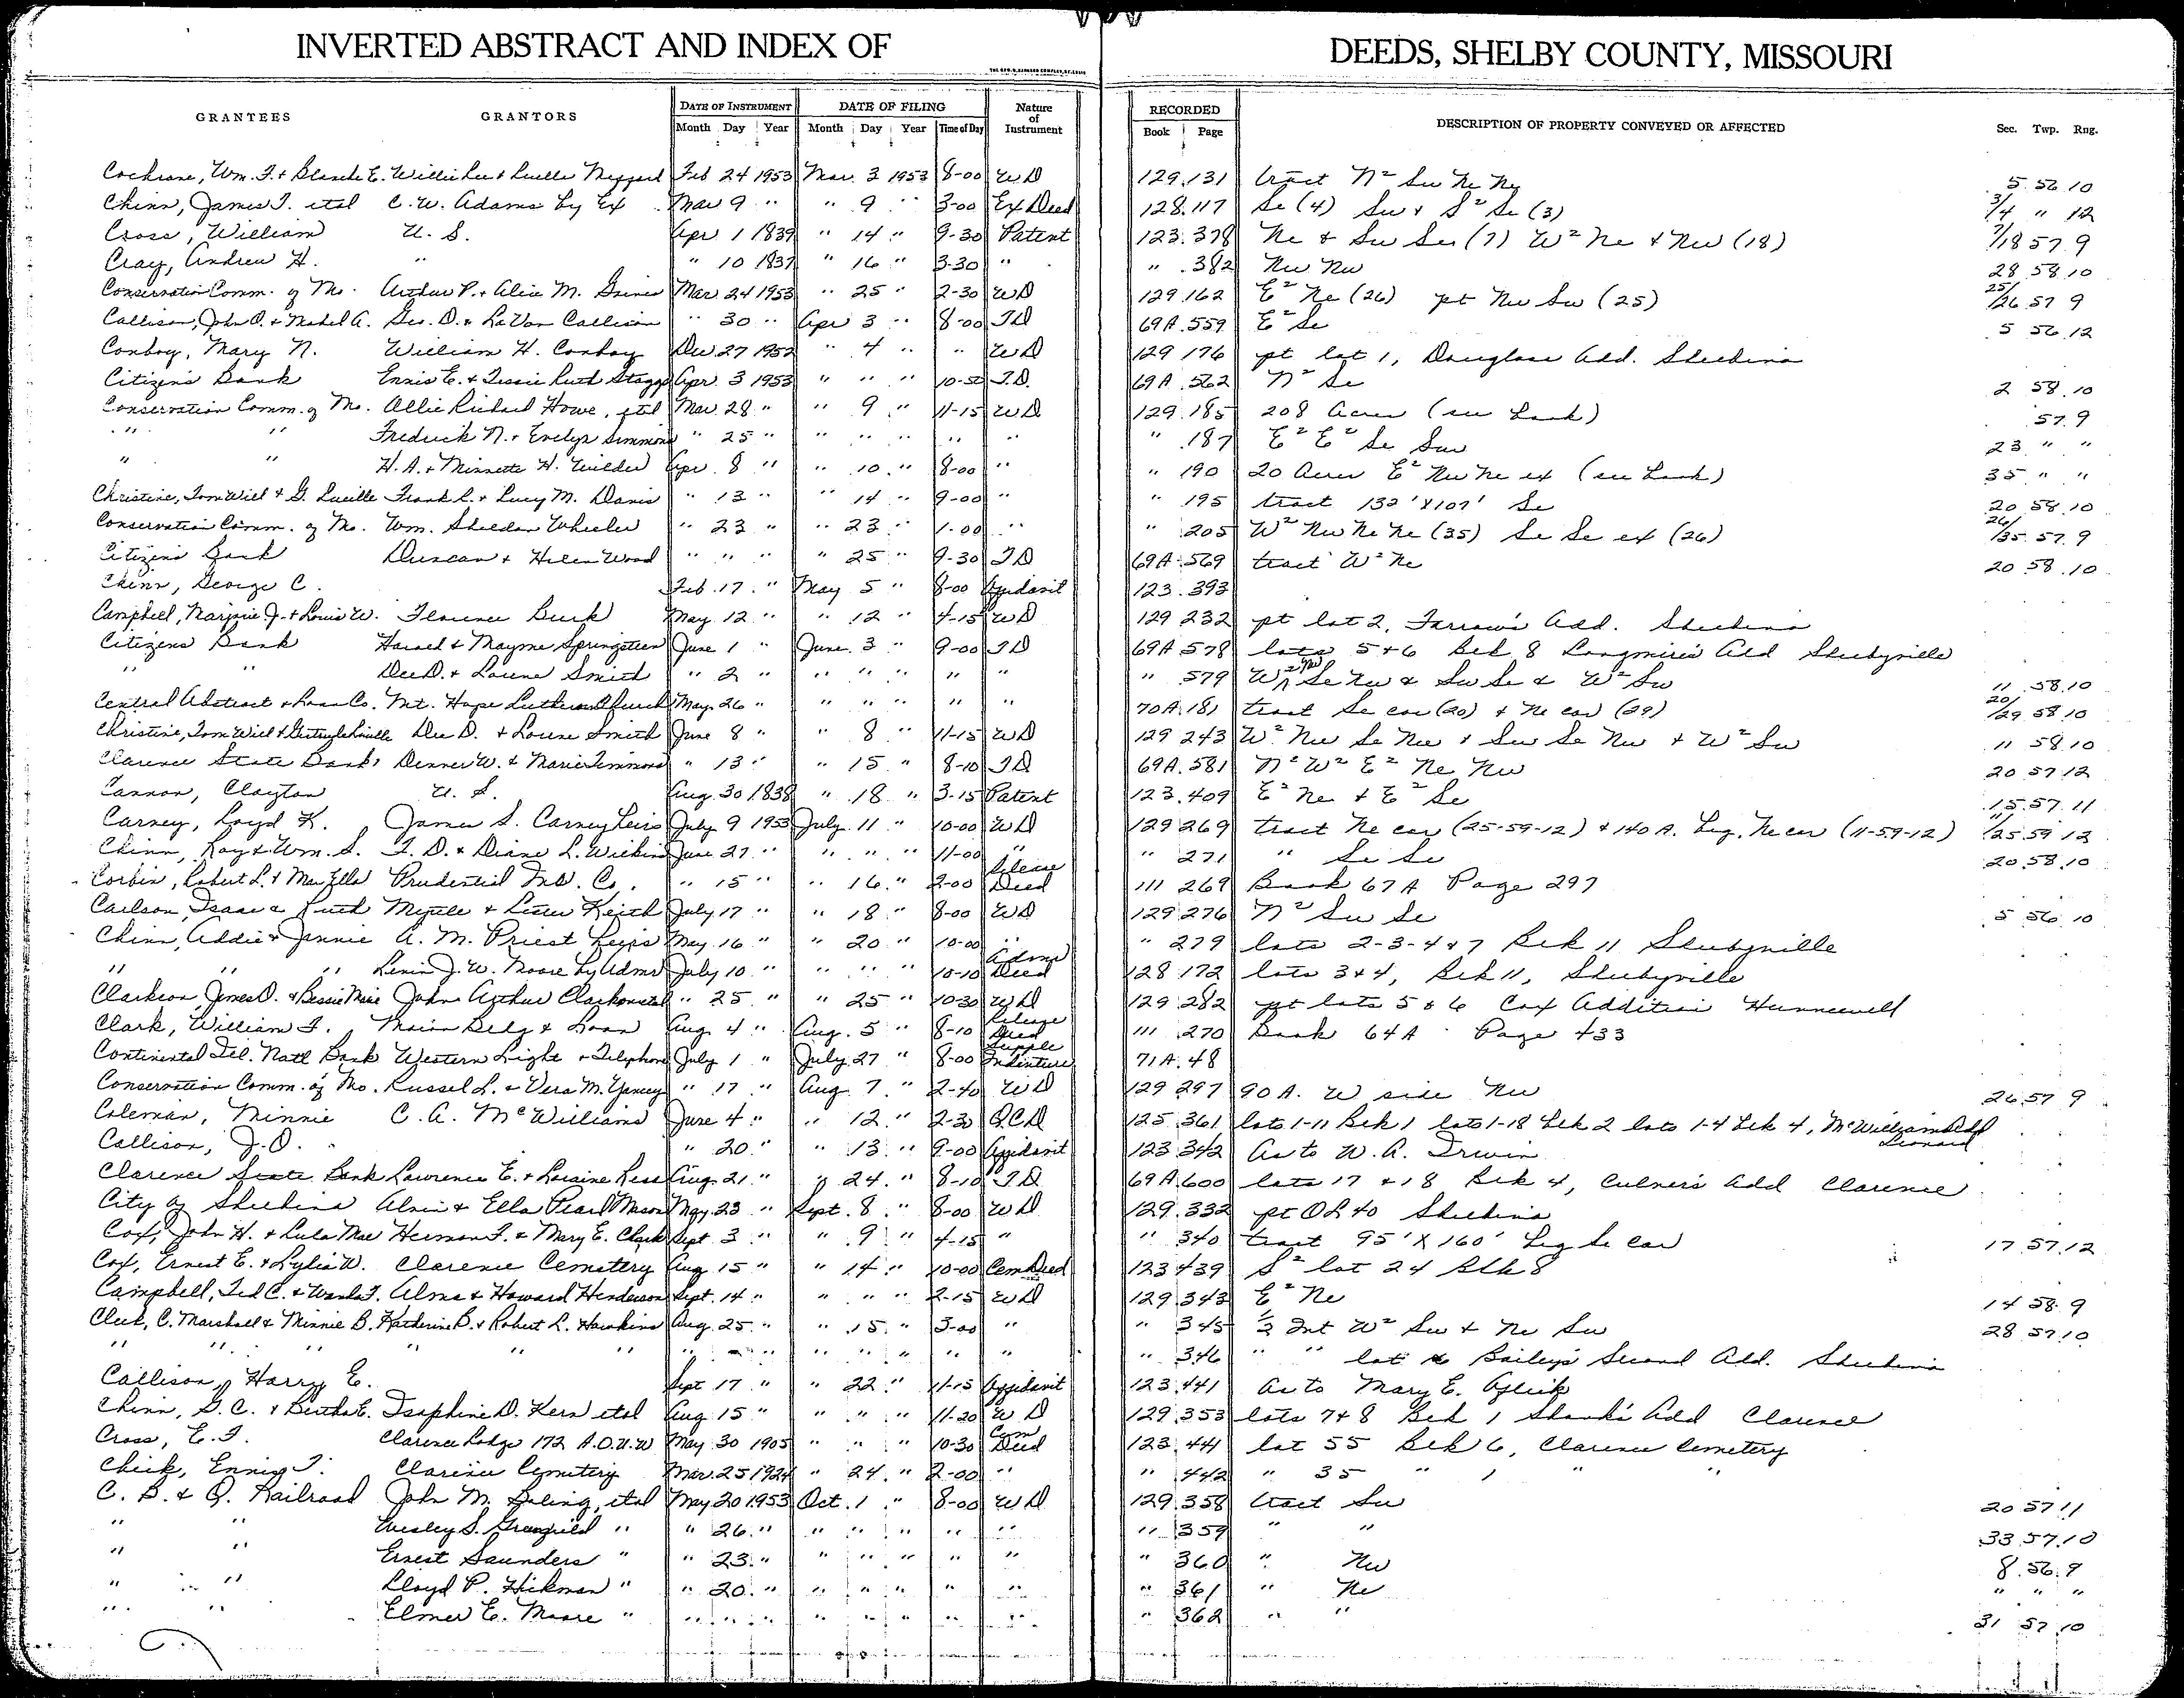 INVERTED ABSTRACT AND INDEX OF DEEDS, SHELBY COUNTY, MISSOURI
GRANTEES GRANTORS DATE OF INSTRUMENT DATE OF FILING Nature of Instrument RECORDED DESCRIPTION OF PROPERTY CONVEYED OR AFFECTED Sec. Twp. Rng.
Month Day Year Month Day Year Time of Day Book Page
Cochrane, Wm. F. & Blanche E. Willie Lee & Luella Feb 24 1953 Mar. 3 1953 8-00 WD 129 131 tract N² Sw Ne Ne 5 56 10
Chinn, James T. etal C. W. Adams by Ex Mar 9 " " 9 " 3-00 Ex Deed 128 117 Se (4) Sw & S² Se (3) 3/4 " 12
Cross, William U. S. Apr 1 1839 " 14 " 9-30 Patent 123 378 Ne & Sw Se (7) W² Ne & Nw (18) 7/18 57 9
Cray, Andrew H. " " 10 1837 " 16 " 3-30 " " 382 Nw Nw 28 58 10
Conservation Comm. of Mo. Arthur P. & Alice M. Mar 24 1953 " 25 " 2-30 WD 129 162 E² Ne (26) pt Nw Sw (25) 25/26 57 9
Callison, John O. & Mabel A. Geo. D. & LaVon Callison " 30 " Apr 3 " 8-00 TD 69A 559 E² Se 5 56 12
Conboy, Mary N. William H. Conboy Dec 27 1952 " 4 " " WD 129 176 pt lot 1, Douglass Add. Shelbina
Citizens Bank Ennis E. & Ruth Apr. 3 1953 " " " 10-50 T.D. 69A 562 N² Se 2 58 10
Conservation Comm. of Mo. Allie Richard Howe, etal Mar 28 " " 9 " 11-15 WD 129 185 208 Acres (see book) 57 9
" " Fredrick N. & Evelyn Simmons " 25 " " " " " " " 187 E² E² Se Sw 23 " "
" " H. A. & Minnette H. Wilder Apr. 8 " " 10 " 8-00 " " 190 20 Acres E² Nw Ne ex (see book) 35 " "
Christine, Tom Will & G. Lucille Frank L. & Lucy M. Davis " 13 " " 14 " 9-00 " " 195 tract 132' X 107' Se 20 58 10
Conservation Comm. of Mo. Wm. Sheldon Wheeler " 23 " " 23 " 1-00 " " 205 W² Nw Ne Ne (35) Se Se ex (26) 26/35 57 9
Citizens Bank Duncan & Helen Wood " " " " 25 " 9-30 TD 69A 569 tract W² Ne 20 58 10
Chinn, George C. Feb 17 " May 5 " 8-00 Affidavit 123 393
Campbell, Marjorie J. & Louis W. Florence Buck May 12 " " 12 " 4-15 WD 129 232 pt lot 2, Add. Shelbina
Citizens Bank Harold & Mayme Springsteen June 1 " June 3 " 9-00 TD 69A 578 lots 5 & 6 Blk 8 Longmire's Add Shelbyville
" " Dee D. & Lorene Smith " 2 " " " " " " " 579 W² Nw Se Nw & Sw Se & W² Sw 11 58 10
Central Abstract & Loan Co. Mt. Hope Lutheran Church May 26 " " " " " " 70A 181 tract Se cor (20) & Ne cor (29) 20/29 58 10
Christine, Tom Will & Dee D. & Lorene Smith June 8 " " 8 " 11-15 WD 129 243 W² Nw Se Nw & Sw Se Nw & W² Sw 11 58 10
Clarence State Bank Denver W. & Marie Timmons " 13 " " 15 " 8-10 TD 69A 581 N² W² E² Ne Nw 20 57 12
Cannon, Clayton U. S. Aug 30 1838 " 18 " 3-15 Patent 123 409 E² Ne & E² Se 15 57 11
Carney, Loyd K. James S. Carney July 9 1953 July 11 " 10-00 WD 129 269 tract Ne cor (25-59-12) & 140 A. Beg. Ne cor (11-59-12) 11/25 59 12
Chinn, Ray & Wm. S. T. D. & Diane L. Wilkins June 27 " " " " 11-00 " " 271 " Se Se 20 58 10
Corbin, Robert L. & Mae Ella Prudential Ins. Co. " 15 " " 16 " 2-00 Release Deed 111 269 Book 67A Page 297
Carlson, Isaac & Ruth Myrtle & Lester Keith July 17 " " 18 " 8-00 WD 129 276 N² Sw Se 5 56 10
Chinn, Addie & Jennie A. M. Priest May 16 " " 20 " 10-00 " " 279 lots 2-3-4 & 7 Blk 11 Shelbyville
" " " J. W. Moore by Admr July 10 " " " " 10-10 Admr Deed 128 172 lots 3 & 4, Blk 11, Shelbyville
Clarkson, James O. & Bessie Marie John Arthur Clarkson etal " 25 " " 25 " 10-30 WD 129 282 pt lots 5 & 6 Cox Addition Hunnewell
Clark, William F. Macon Bldg & Loan Aug 4 " Aug. 5 " 8-10 Release Deed 111 270 Book 64A Page 433
Continental Ill. Natl Bank Western Light & Telephone July 1 " July 27 " 8-00 Supple Indenture 71A 48
Conservation Comm. of Mo. Russel L. & Vera M. Yancey " 17 " Aug 7 " 2-40 WD 129 297 90 A. W side Nw 26 57 9
Coleman, Minnie C. A. McWilliams June 4 " " 12 " 2-30 Q.C.D 125 361 lots 1-11 Blk 1 lots 1-18 Blk 2 lots 1-4 Blk 4, McWilliams Add Leonard
Callison, J. O. " 20 " " 13 " 9-00 Affidavit 123 342 As to W. A. Irwin
Clarence State Bank Lawrence E. & Loraine Aug. 21 " " 24 " 8-10 T.D. 69A 600 lots 17 & 18 Blk 4, Culver's Add Clarence
City of Shelbina Alvin & Ella Pearl Mason May 23 " Sept. 8 " 8-00 WD 129 332 pt OL 40 Shelbina
Cox, John H. & Lula Mae Herman F. & Mary E. Clark Sept 3 " " 9 " 4-15 " " 340 tract 95' X 160' Beg Se cor 17 57 12
Cox, Ernest E. & Lylia W. Clarence Cemetery Aug 15 " " 14 " 10-00 Cem Deed 123 439 S² lot 24 Blk 8
Campbell, Ted C. & Alma & Howard Henderson Sept. 14 " " " " 2-15 WD 129 343 E² Ne 14 58 9
Cleek, C. Marshall & Minnie B. Katherine B. & Robert L. Hawkins Aug. 25 " " 15 " 3-00 " " 345 ½ Int W² Sw & Ne Sw 28 57 10
" " " " " " " " " " " " " " " 346 " " lot Bailey's Second Add. Shelbina
Callison, Harry E. Sept 17 " " 22 " 11-15 Affidavit 123 441 As to Mary E.
Chinn, G. C. & Bertha E. Josephine D. Kern etal Aug 15 " " " " 11-20 WD 129 353 lots 7 & 8 Blk 1 Shanks Add Clarence
Cross, E. T. Clarence Lodge 172 A.O.U.W May 30 1905 " " " 10-30 Cem Deed 123 441 lot 55 Blk 6, Clarence Cemetery
Cheek, Ennis T. Clarence Cemetery Mar. 25 1924 " 24 " 2-00 " " 442 " 35 " , " "
C. B. & Q. Railroad John M. etal May 20 1953 Oct. 1 " 8-00 WD 129 358 tract Sw 20 57 11
" " Wesley S. " " 26 " " " " " " " 359 " " 33 57 10
" " Ernest Saunders " " 23 " " " " " " " 360 " Nw 8 56 9
" " Lloyd P. Hickman " " 20 " " " " " " " 361 " Ne " " "
" " Elmer E. Moore " " " " " " " " " " 362 " " 31 57 10